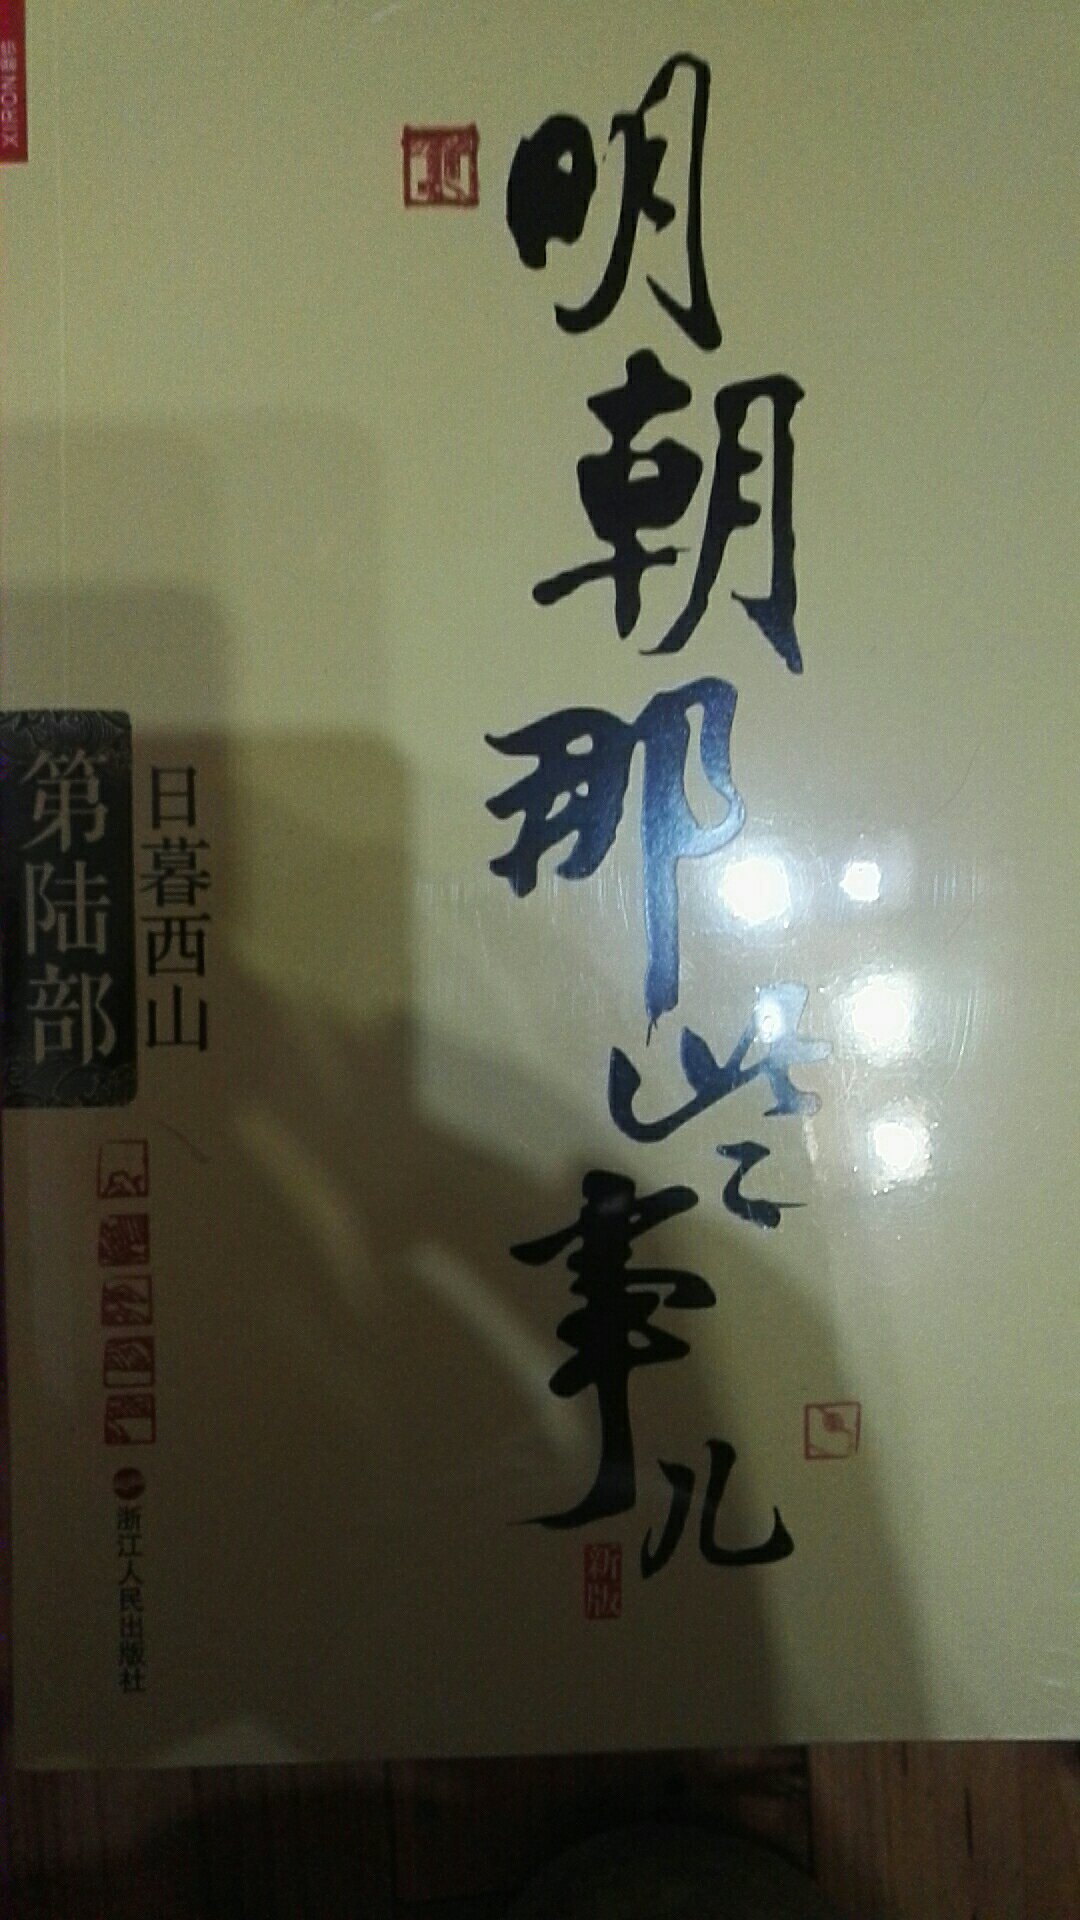 明朝那些事儿
新版
XIRON 磨铁
第陆部
日暮西山
浙江人民出版社